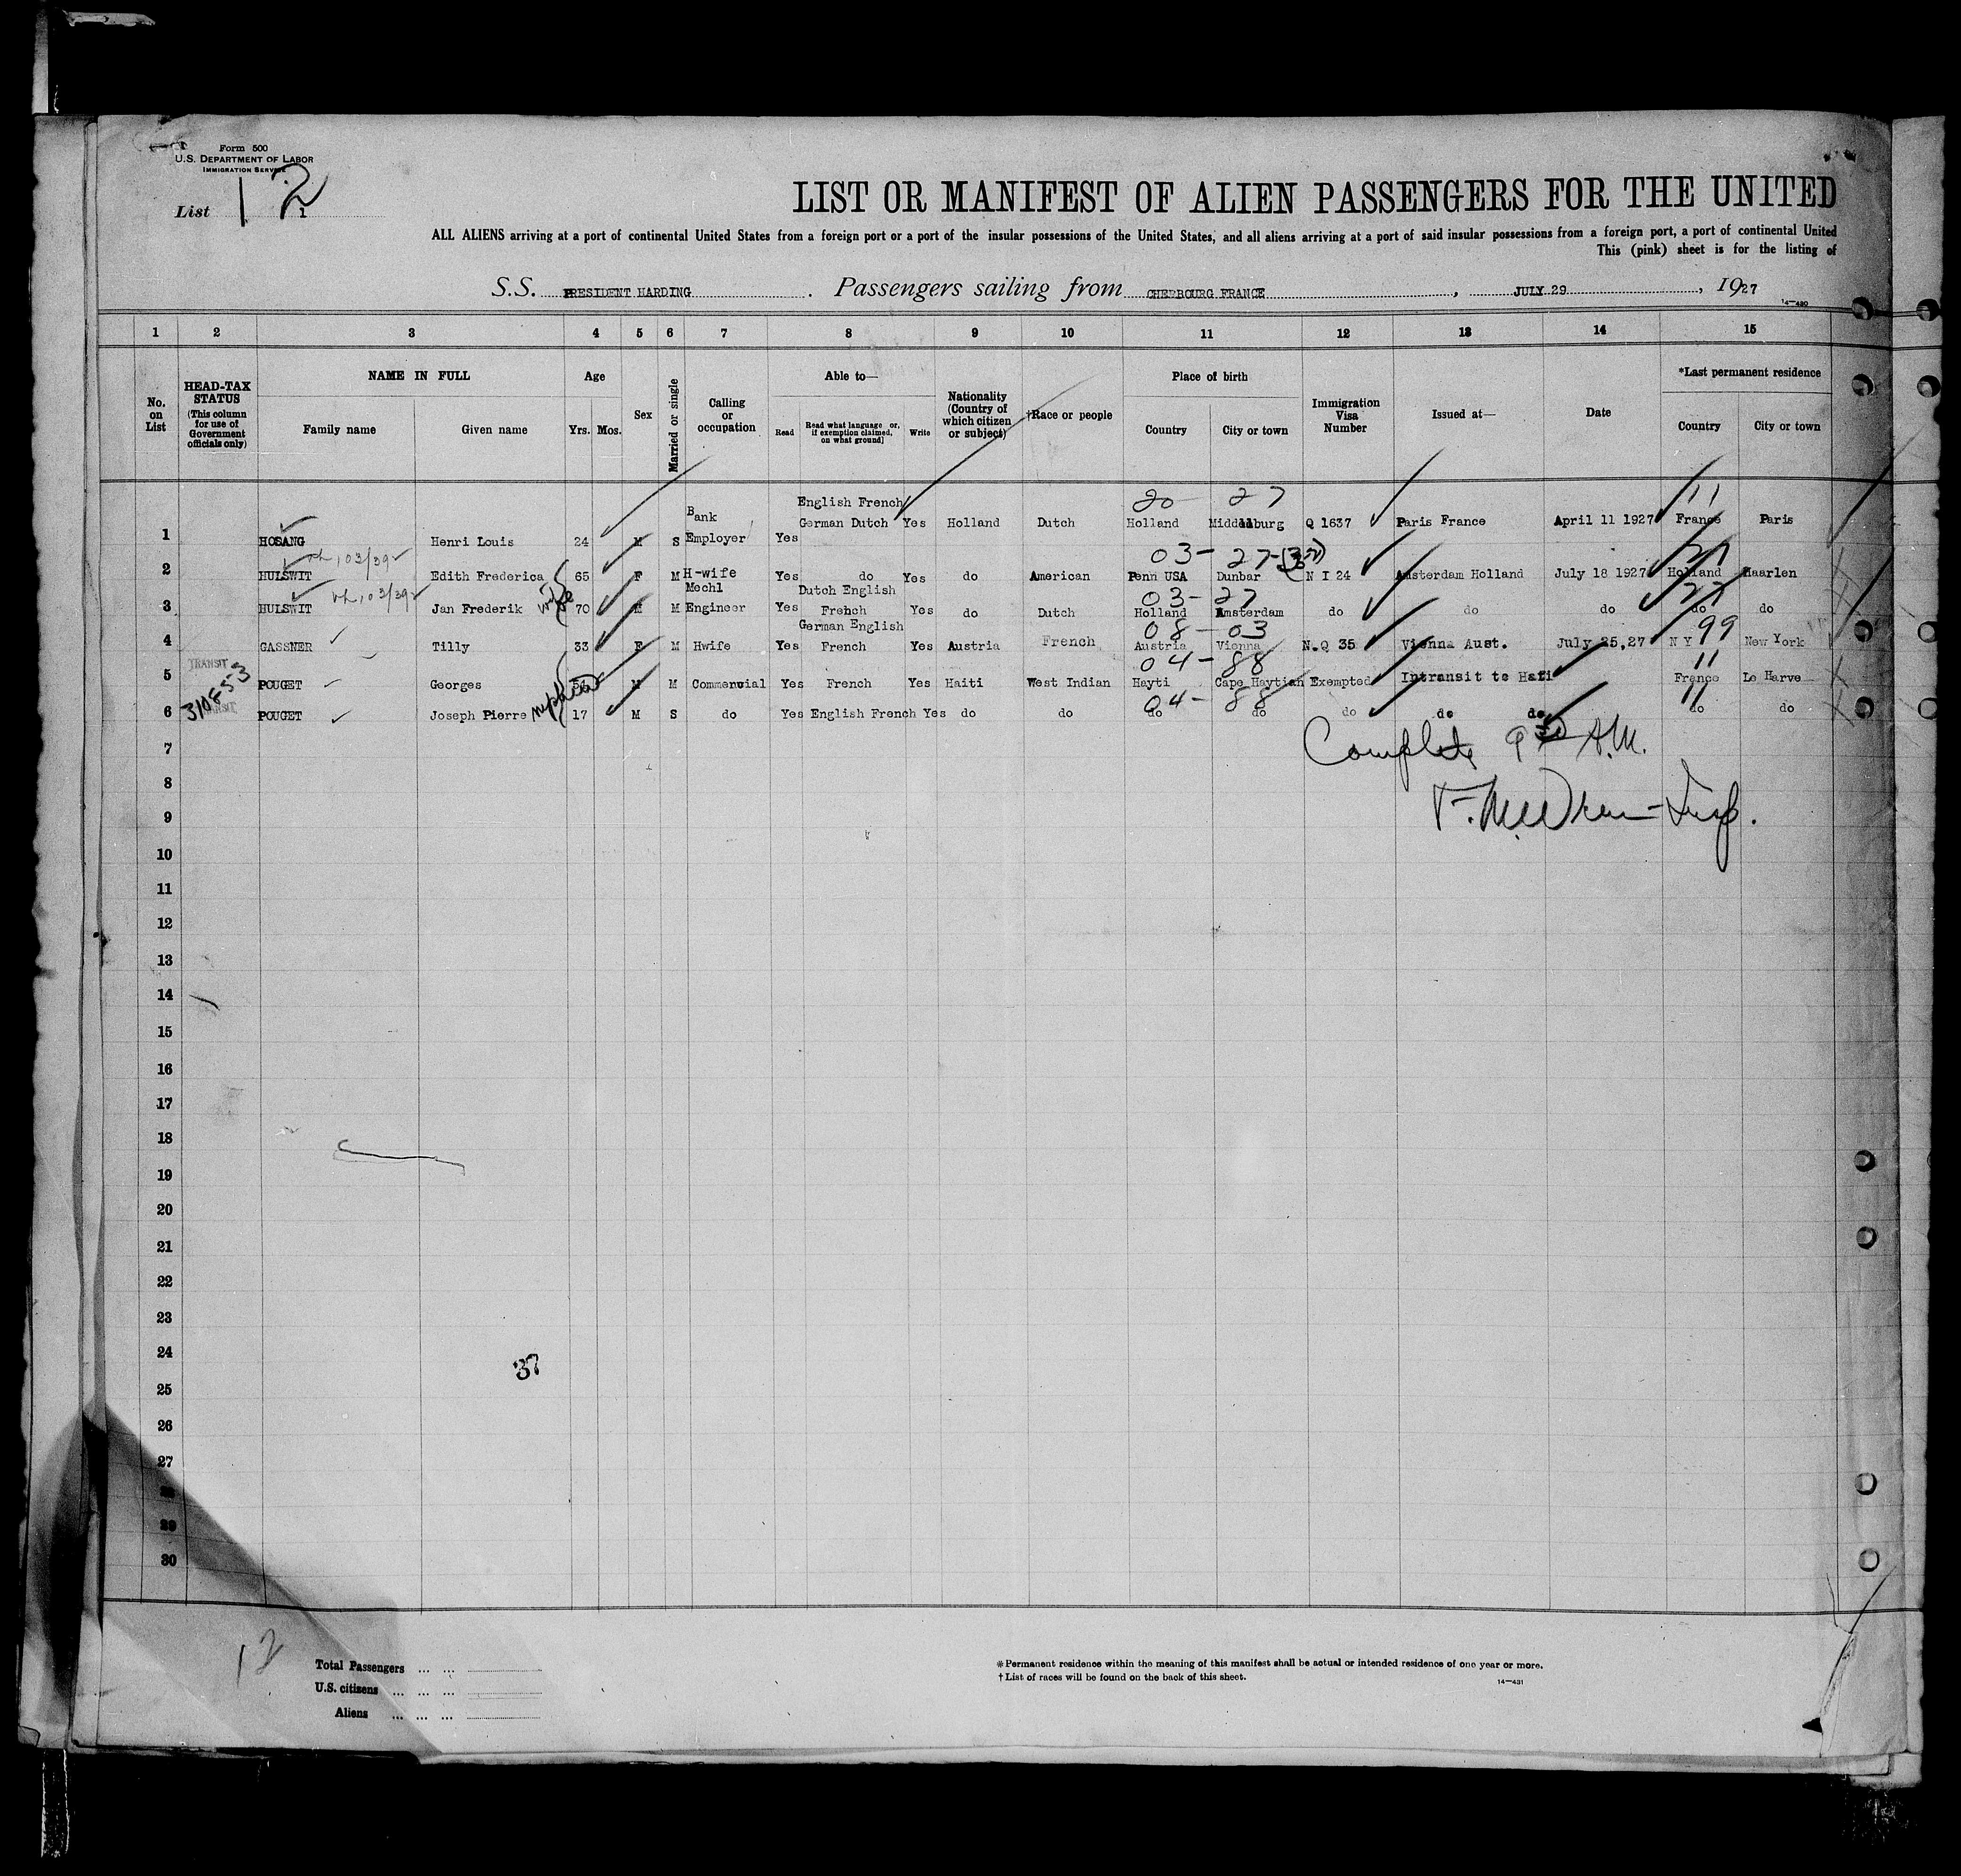 Form 500
U.S. DEPARTMENT OF LABOR
IMMIGRATION SERVICE
List 1 2
1
LIST OR MANIFEST OF ALIEN PASSENGERS FOR THE UNITED
ALL ALIENS arriving at a port of continental United States from a foreign port or a port of the insular possessions of the United States, and all aliens arriving at a port of said insular possessions from a foreign port, a port of continental United
This (pink) sheet is for the listing of
S.S. PRESIDENT HARDING. Passengers sailing from CHERBOURG FRANCE, JULY 29, 1927
14—430
1 2 3 4 5 6 7 8 9 10 11 12 13 14 15
No. on List
HEAD-TAX STATUS (This column for use of Government officials only)
NAME IN FULL
Family name Given name
Age
Yrs. Mos.
Sex
Married or single
Calling or occupation
Able to—
Read Read what language or, if exemption claimed, on what ground] Write
Nationality (Country of which citizen or subject)
†Race or people
Place of birth
Country City or town
Immigration Visa Number
Issued at—
Date
*Last permanent residence
Country City or town
20 27 11
1 HOSANG Henri Louis 24 M S Bank Employer Yes English French German Dutch Yes Holland Dutch Holland Middelburg Q 1637 Paris France April 11 1927 France Paris
03/39 03-27 27
2 HULSWIT Edith Frederica 65 F M H-wife Yes do Yes do American Penn USA Dunbar N I 24 Amsterdam Holland July 18 1927 Holland Haarlen
03/39 wife 03-27 27
3 HULSWIT Jan Frederik 70 M M Mechl Engineer Yes Dutch English French Yes do Dutch Holland Amsterdam do do do do do
08-03 99
4 GASSNER Tilly 33 F M Hwife Yes German English French Yes Austria French Austria Vienna N.Q 35 Vienna Aust. July 25,27 N Y New York
TRANSIT 04-88 11
5 POUGET Georges M M Commervial Yes French Yes Haiti West Indian Hayti Cape Haytian Exempted Intransit to Hati France Le Harve
310853 nephew 04-88 11
6 POUGET Joseph Pierre 17 M S do Yes English French Yes do do do do do do do do do
7
Complete 9 30 A.M.
8
9
10
11
12
13
14
15
16
17
18
19
20
21
22
23
24
37
25
26
27
28
29
30
12
Total Passengers ... ...
U.S. citizens ... ... ...
Aliens ... ... ...
*Permanent residence within the meaning of this manifest shall be actual or intended residence of one year or more.
†List of races will be found on the back of this sheet.
14—431